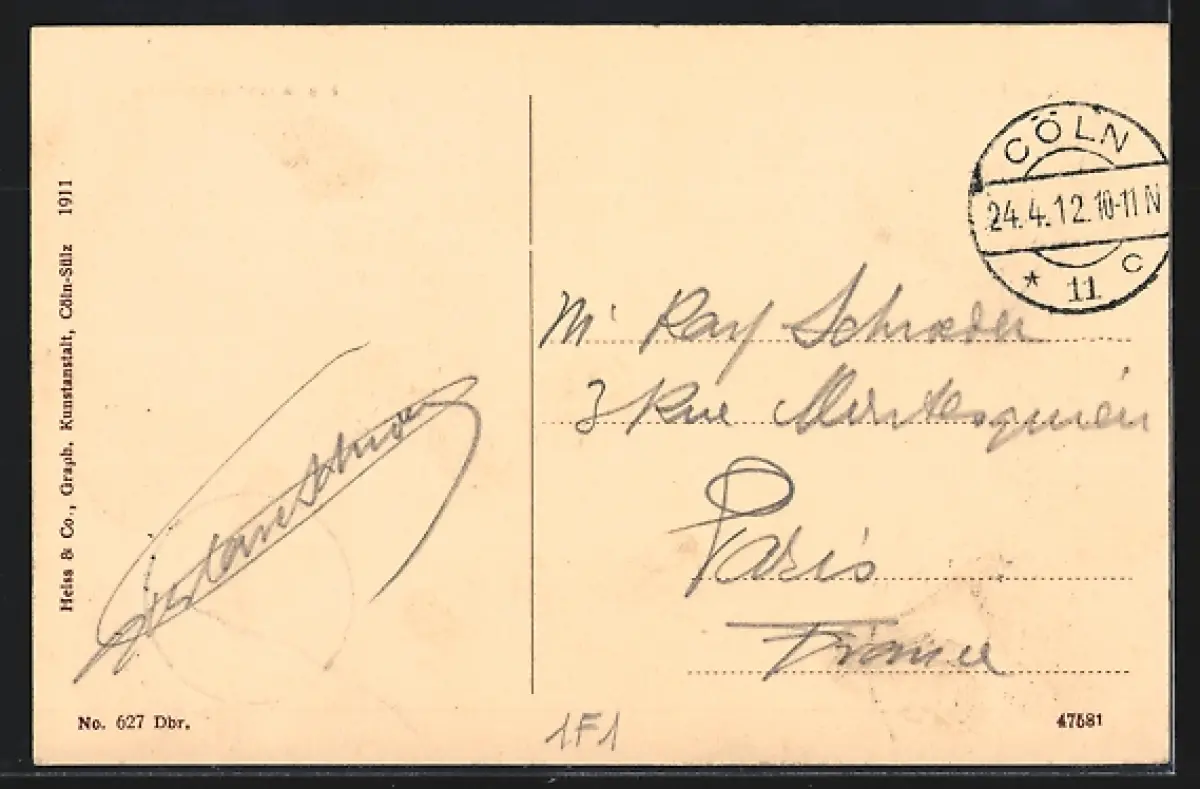 Heiss & Co., Graph. Kunstanstalt, Cöln-Sülz 1911
CÖLN
24.4.12.10-11 N
* 11 c
Mr Ray Schroeder
3 Rue Montesquieu
Paris
France
No. 627 Dbr.
1F1
47581